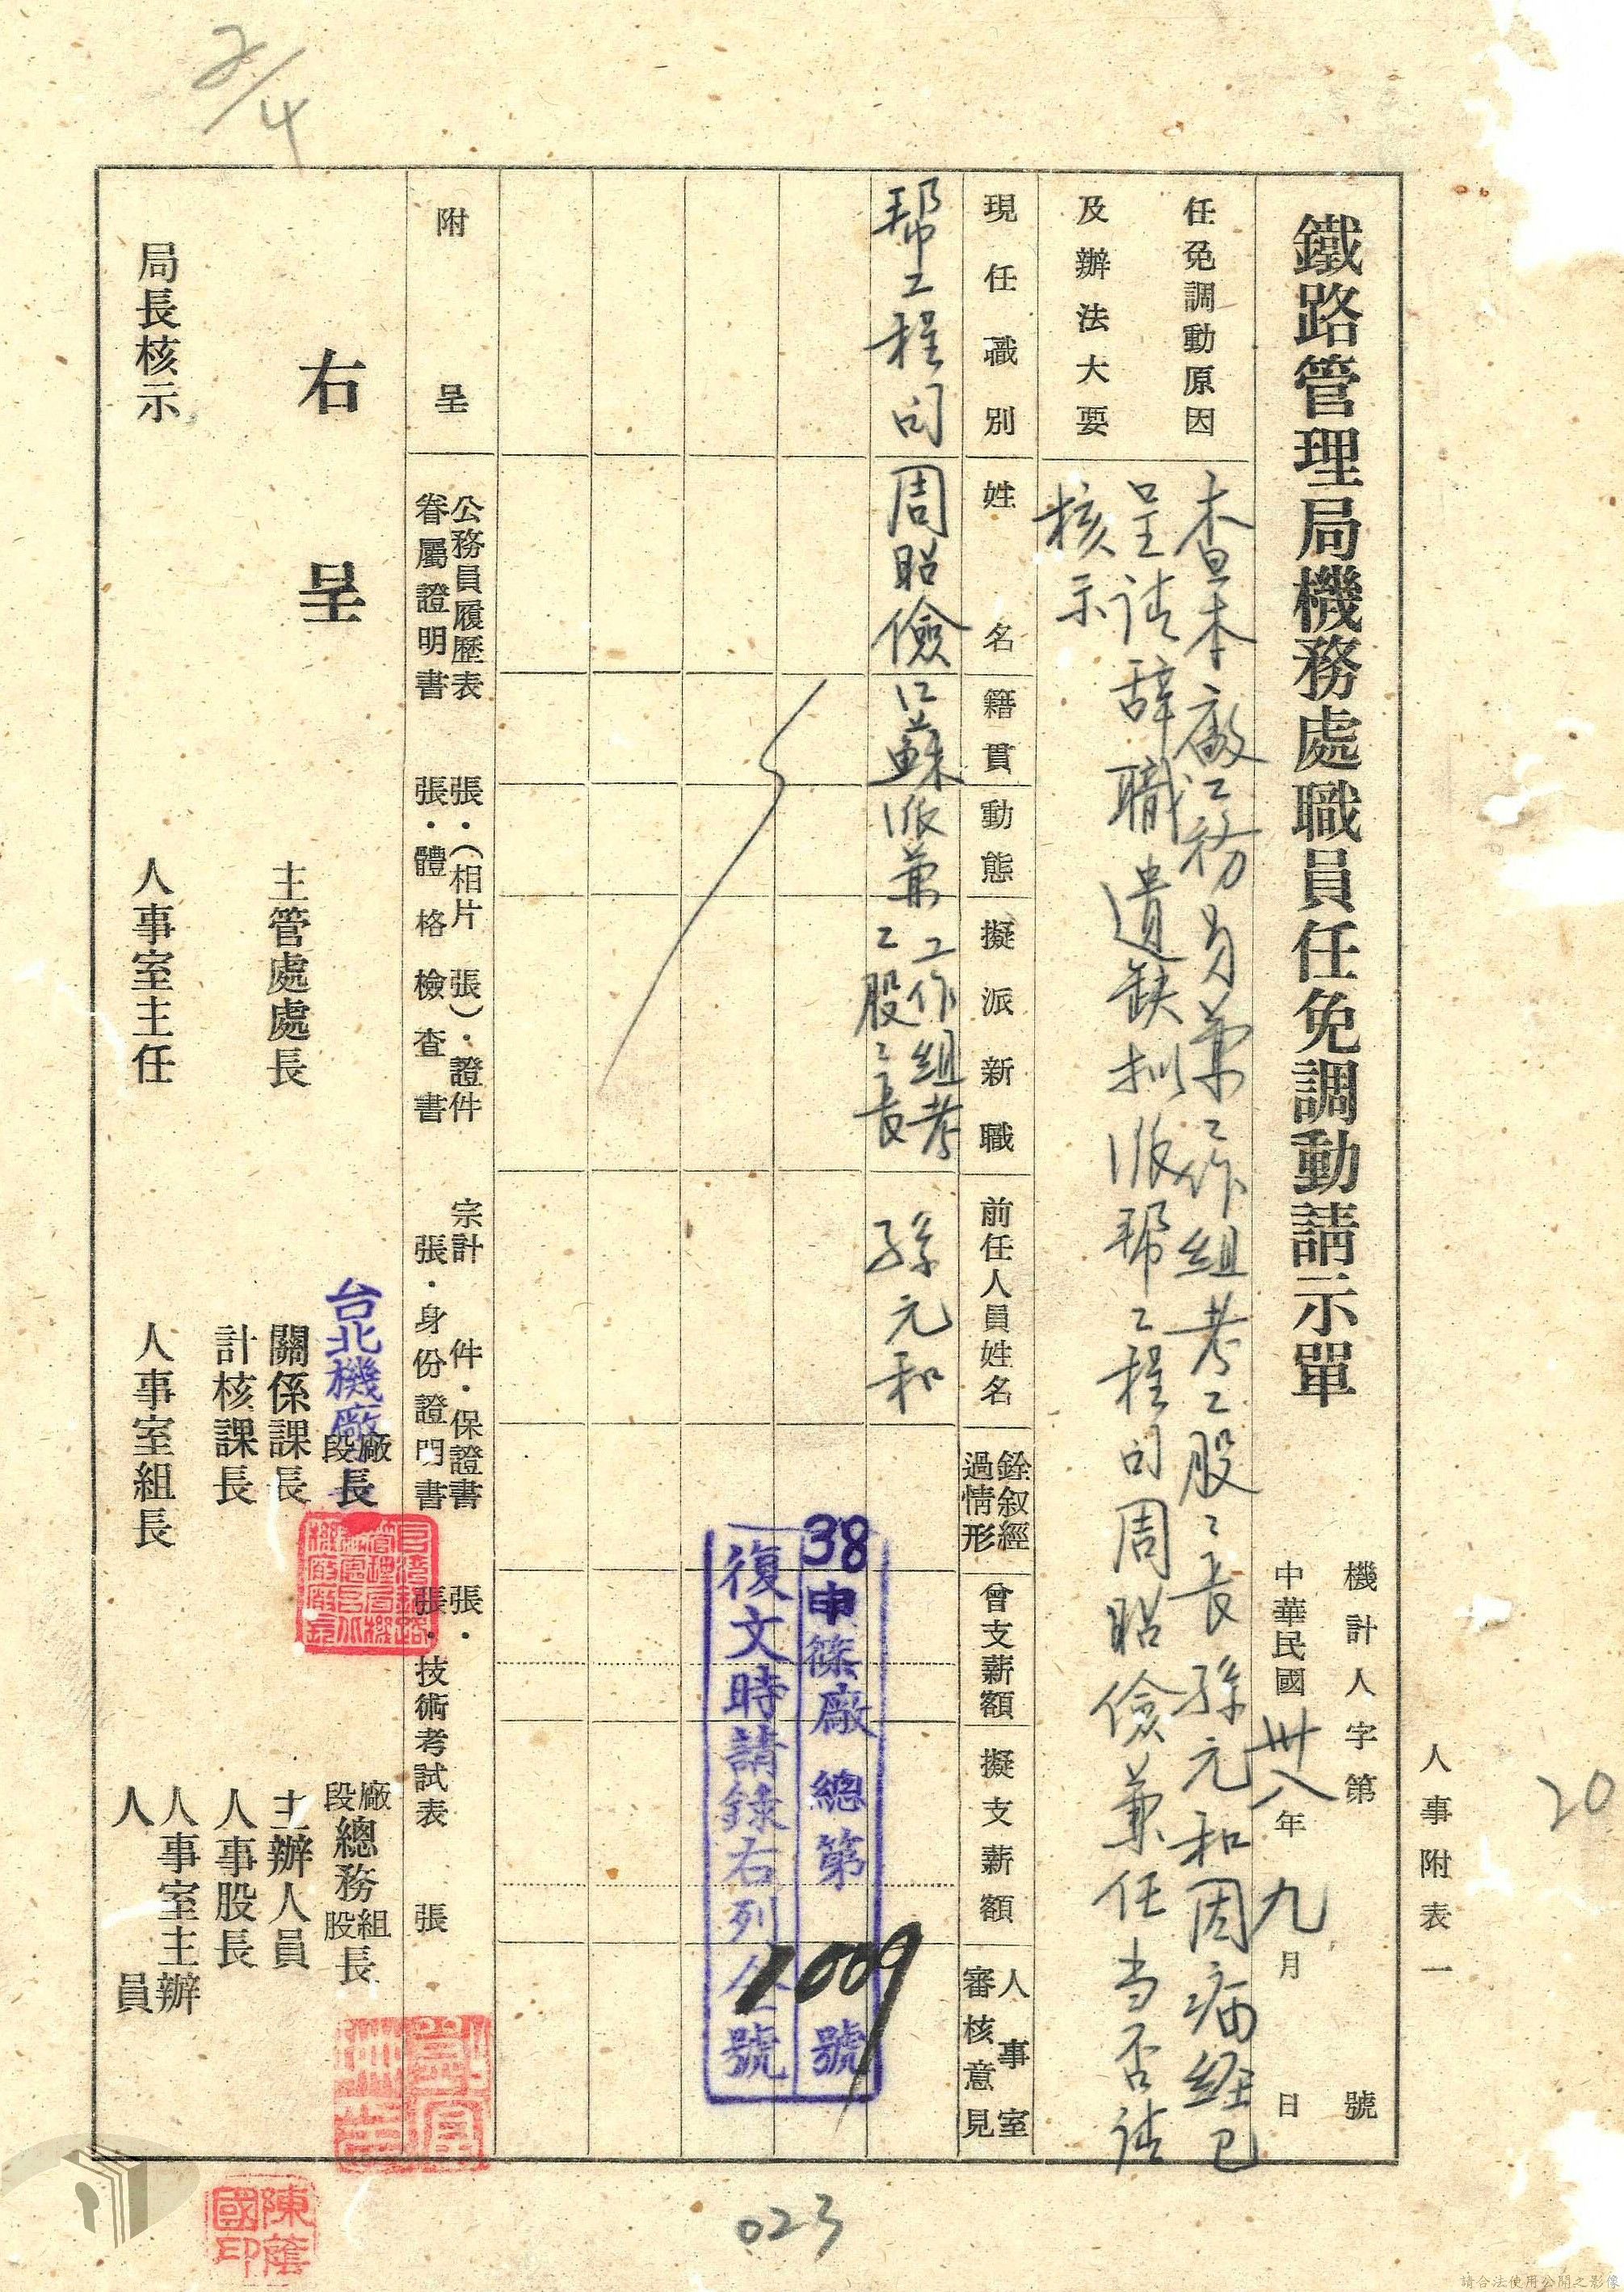 2/4
20
人事附表一
鐵路管理局機務處職員任免調動請示單
機計人字第 號
中華民國卅八年九月 日
任免調動原因
及辦法大要
查本廠工務員兼工作組考工股股長孫元和因病經已
呈请辞職遺缺拟派帮工程司周昭儉兼任当否请
核示
現任職別
姓名
籍貫
動態
擬派新職
前任人員姓名
銓叙經
過情形
曾支薪額
擬支薪額
人事室
審核意見
帮工程司
周昭儉
江蘇
派兼
工作組考
工股々長
孫元和
38申篠廠總第1009號
復文時請錄右列公號
附呈
公務員履歷表 張・(相片 張)・證件 宗計 件・保證書 張・
眷屬證明書 張・體格檢查書 張・身份證明書 張・技術考試表 張
右呈
台北機廠
廠段長
廠段總務組股長
主管處處長
關係課長
主辦人員
計核課長
人事股長
局長核示
人事室主任
人事室組長
人事室主辦
人員
陳蔭
國印
023
請合法使用公開之影像